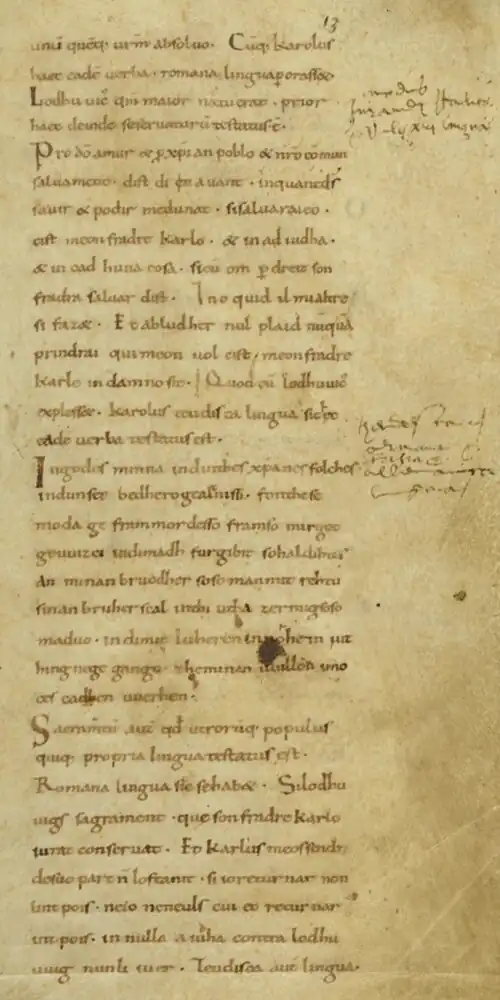 13
unū quēq; ur̄m absoluo. Cūq; karolus
haec eadē uerba. romana linguā porasset.
Lodhuuic̄ qm̄ maior natu erat. prior
haec deinde se seruaturū testatus ē.
Pro dō amur & p xp̄ian poblo & nr̄o cōmun
saluament. dist di en auant. inquantdś
sauir & podir medunat. sisaluaraieo.
cist meon fradre karlo. & in ad iudha.
& in cad huna cosa. sicū om p dreit son
fradra saluar dist. Ino quid il mialtre
si fazet. Et abludher nul plaid nūquā
prindrai qui meon uol cist, meon fradre
karle in damno sit. Quod cū lodhuuic̄
explesset. karolus teudisca lingua sic h̄c
eadē uerba testatus est.
Ingodes minna indinthes xp̄anes folches
indunser bedhero gealtnissi. fonthese
moda ge frammordesso framso mirgot
geuuizci indimadh furgibit sohaldihtes
an minan bruodher soso man mit rehtu
sinan bruher scal inthi utha zermigsoso
maduo. indimit luheren in nohein iut
hing nege gango. zheminan uuillon imo
ce scadhen uuerhen.
Sacramtū aut qd̄ utrorūq; populus
quiq; propria lingua testatus est.
Romana lingua sic se habet. Silodhu
uigs sagrament. que son fradre karlo
iurat conseruat. Et karlus meossendr̄
desuo part n̄ lostanit. si ioreturnar non
lint pois. neio neneuls cui eo returnar
int pois. in nulla aiuha contra lodhu
uuig nunli iuer. Teudisca aut lingua.